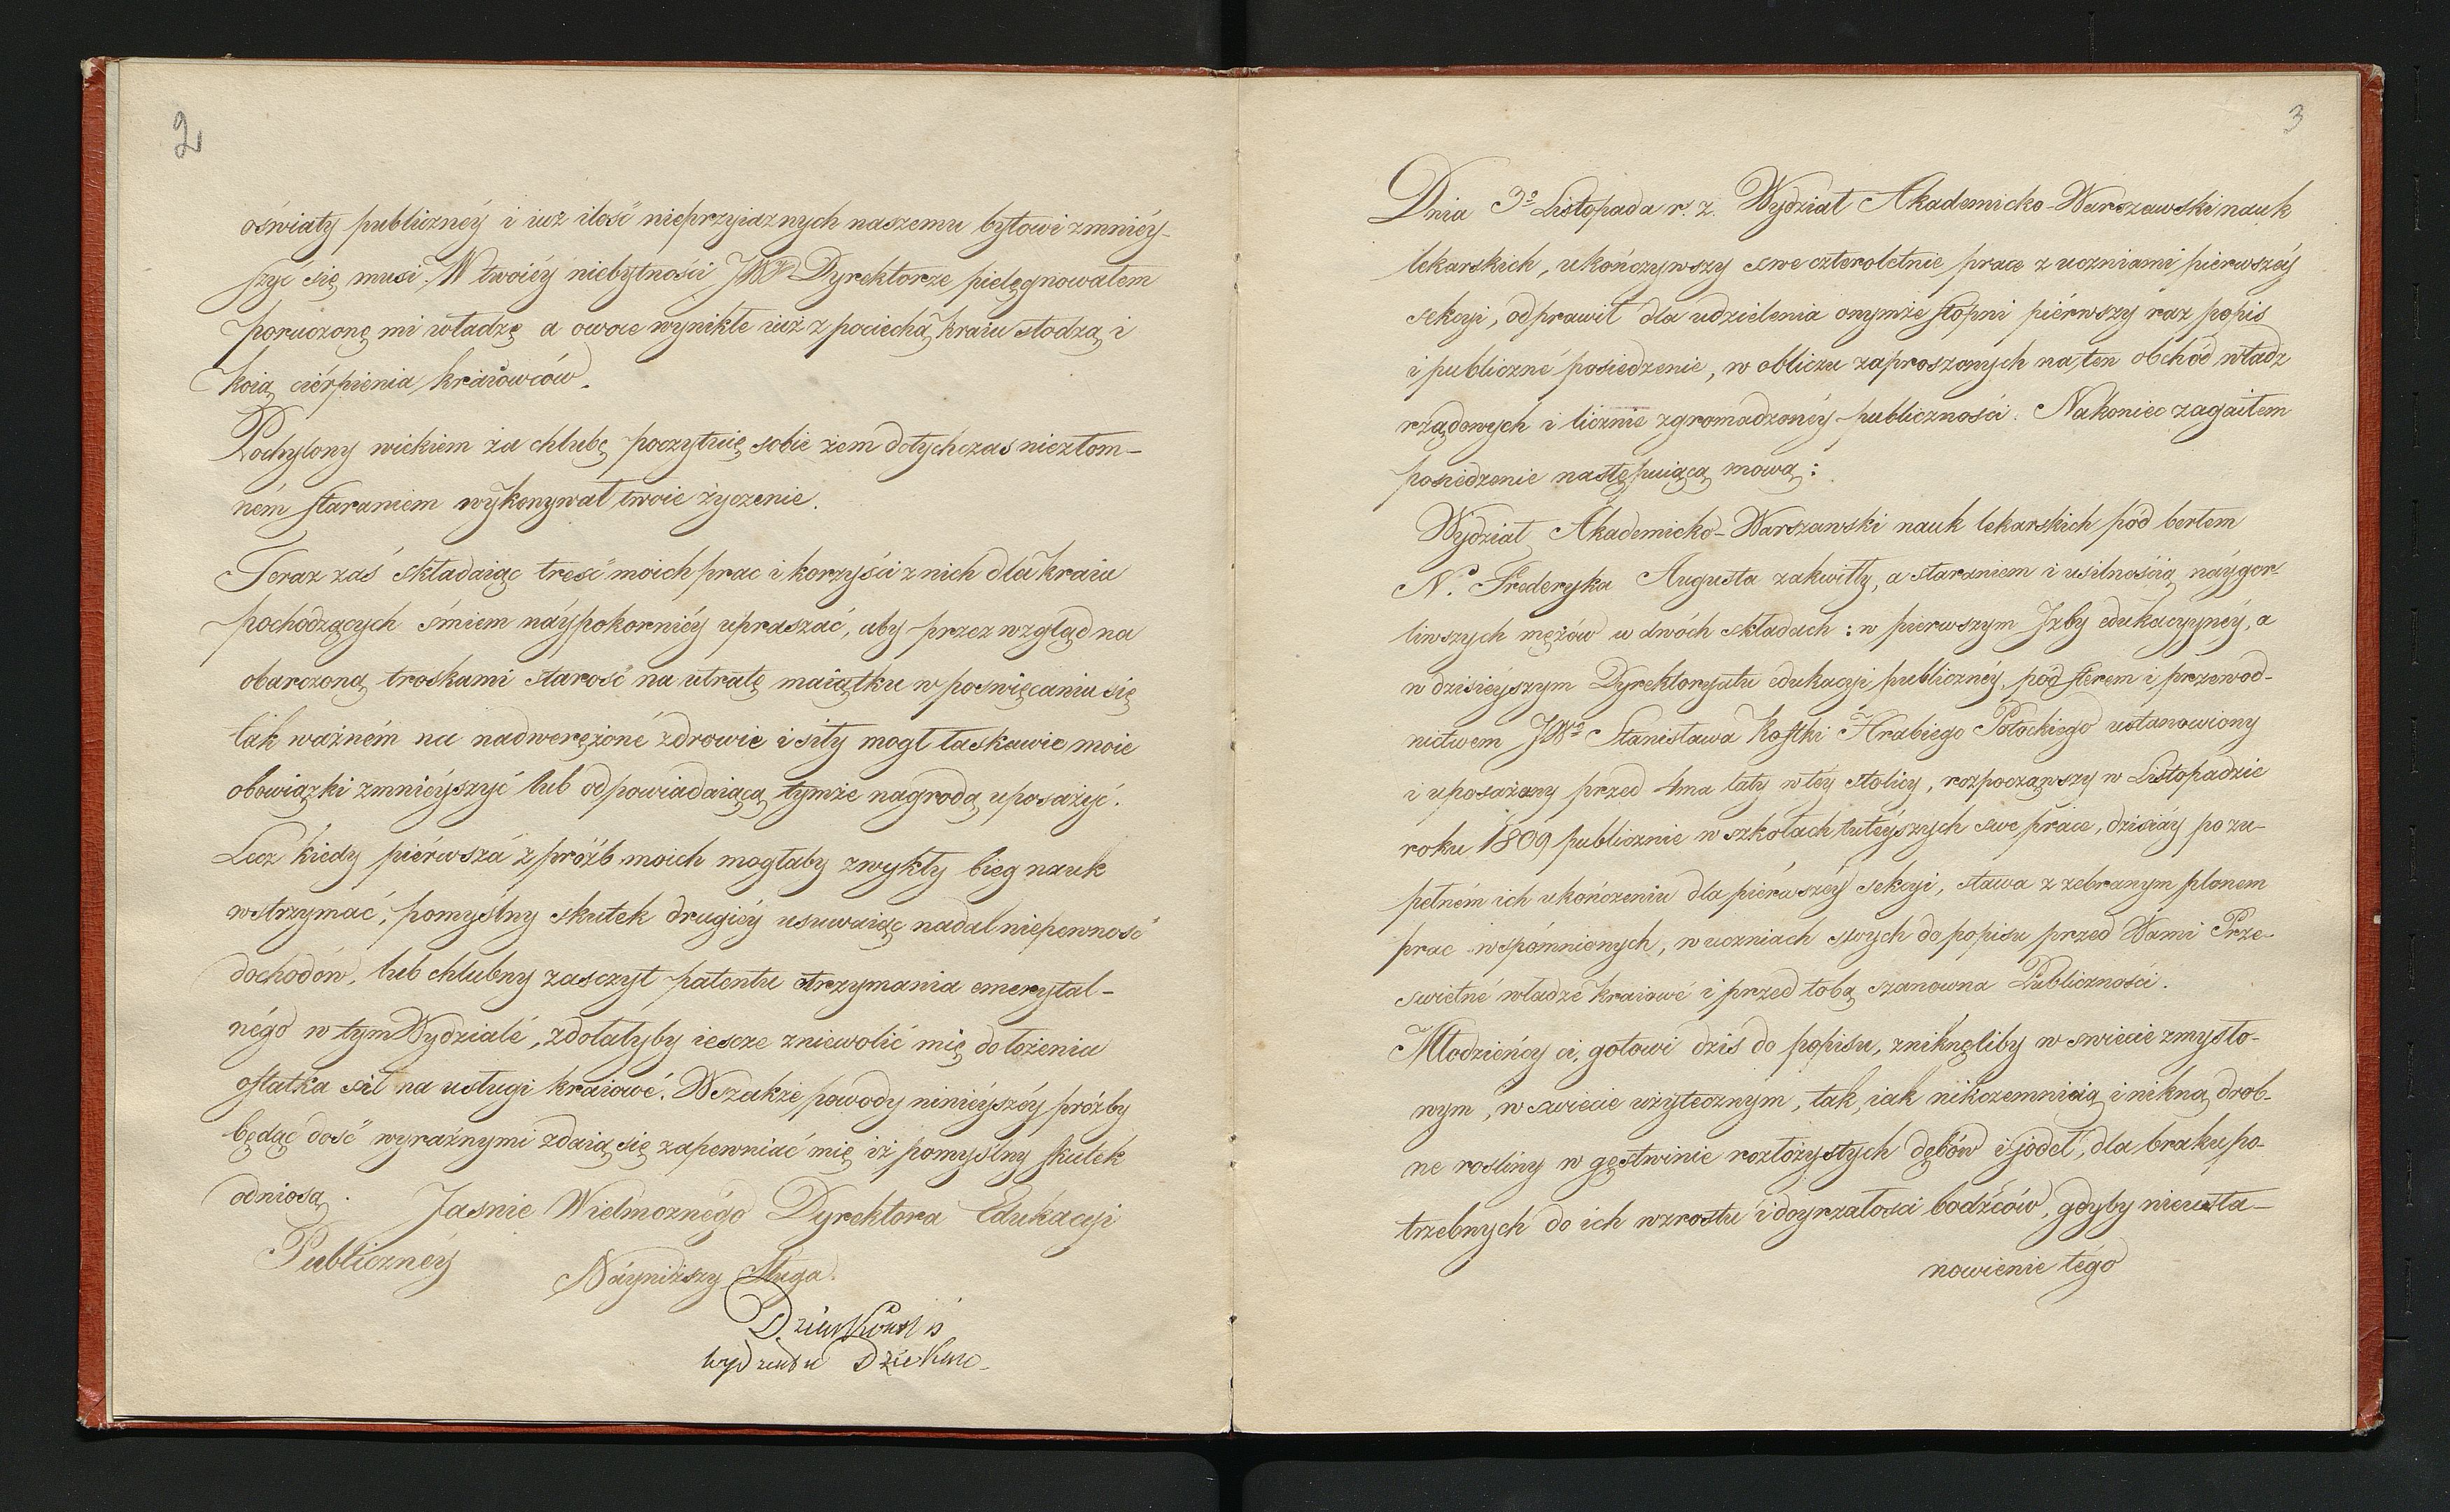 2
oświaty publicznéy i iuż ilość nieprzyiaznych naszemu bytowi zmniéy-
szyć się musi. W twoiéy niebytności JWP Dyrektorze pielęgnowałem
poruczoną mi władzę a owoce wynikłe iuż z pociechą kraiu słodzą i
koią ciérpienia kraiowców.
Pochylony wiekiem za chlubę poczytuię sobie żem dotychczas niezłom-
ném staraniem wykonywał twoie życzenie.
Teraz zaś składaiąc treść moich prac i korzyści z nich dla kraiu
pochodzących śmiem náypokorniéy upraszać, aby przez wzgląd na
obarczoną troskami starość na utratę maiątku w poswięcaniu się
tak ważném na nadwerężoné zdrowie i siły mogł łaskawie moie
obowiązki zmniéyszyć lub odpowiadaiącą tymże nagrodą uposażyć.
Lecz kiedy piérwszá z próżb moich mogłaby zwykły bieg nauk
wstrzymać, pomyślny skutek drugiéy usuwaiąc nadal niepewność
dochodów, lub chlubny zasczyt patentu otrzymania emerytal-
négo w tym Wydzialé, zdołałyby iescze zniewolić mię do łożenia
ostatka sił na usługi kraiowé. Wszakże powody niniéyszéy próżby
będąć dość wyraźnymi zdaią się zapewniać mię iż pomyślny skutek
odniosą.
Jasnie Wielmożnégo Dyrektora Edukacyi
Publicznéy
Náyniższy Sługa.
Dziarkowski
wydziału Dziekan
3
Dnia 3º Listopada r. z. Wydział Akademicko-Warszawski nauk
lekarskich, ukończywszy swe czteroletnie prace z uczniami pierwszéy
sekcyi, odprawił dla udzielenia onymże stopni piérwszy raz popis
i publiczné posiedzenie, w obliczu zaproszonych na ten obchód władz
rządowych i licznie zgromadzonéy publiczności. Nakoniec zagaiłem
posiedzenie następuiącą mową:
Wydział Akademicko-Warszawski nauk lekarskich pód berłem
N. Fréderyka Augusta zakwitły, a staraniem i usilnością náygor-
liwszych mężów w dwóch składach: w pierwszym Izby edukacyynéy, a
w dzisiéyszym Dyrektoryatu edukacyi publicznéy, pód sterem i przewod-
nictwem JWº Stanisława Kostki Hrabiego Potockiégo ustanowiony
i uposażony przed 4ma laty w téy stolicy, rozpocząwszy w Listopadzie
roku 1809 publicznie w szkołach tutéyszych swe prace, dzisiáy po zu-
pełném ich ukończeniu dla piérwszéy sekcyi, stawa z zebranym plonem
prac wspómnionych, w uczniach swych do popisu przed Wami Prze-
swietné władze kraiowé i przed tobą szanowna Publiczności.
Młodzieńcy ci, gotowi dzis do popisu, zniknęliby w swiecie zmysło-
wym, w swiecie użytecznym, tak, iak nikczemnieią i nikną drob-
ne rosliny w gęstwinie rozłożystych dębów i jodeł, dla braku po-
trzebnych do ich wzrostu i doyrzałosci bodźców, gdyby nieusta-
nowienie tégo